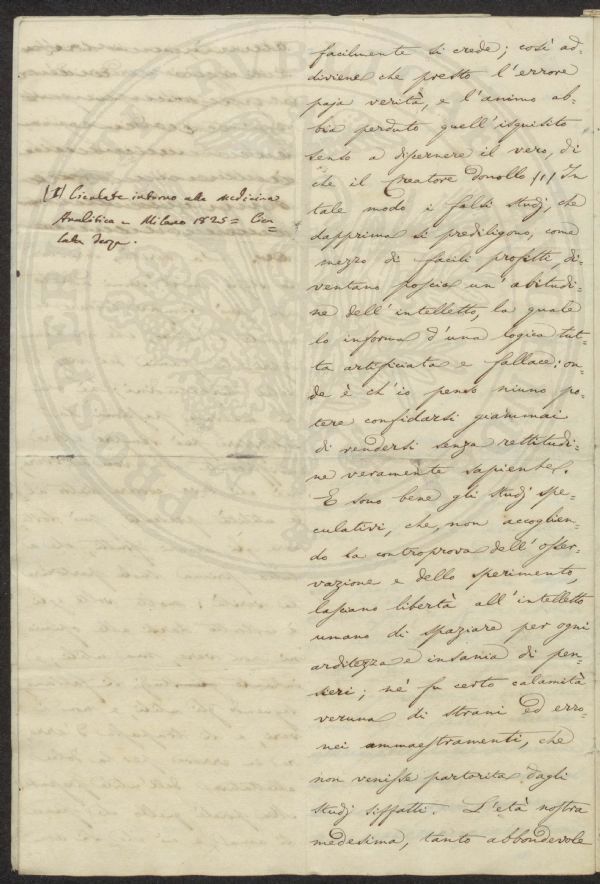 facilmente si crede; così ad-
diviene che presto l'errore
paja verità, e l'animo ab-
bia perduto quell'isquisito
senso a discernere il vero, di
che il Creatore donollo (1) In
tale modo i falsi studj, che
dapprima si prediligono, come
mezzo di facili profitti, di-
ventano poscia un'abitudi-
ne dell'intelletto, la quale
lo informa d'una logica tut-
ta artificiata e fallace: on-
de è ch'io penso niuno po-
tere confidarsi giammai
di rendersi senza rettitudi-
ne veramente sapiente.
E sono bene gli studj spe-
culativi, che, non accoglien-
do la controprova dell'osser-
vazione e dello sperimento,
lasciano libertà all'intelletto
umano di spaziare per ogni
arditezza e insania di pen-
sieri; né fu certo calamità
veruna di strani ed erro-
nei ammaestramenti, che
non venisse partorita dagli
studj siffatti. L'età nostra
medesima, tanto abbondevole
(1) Cicalate intorno alla medicina
Analitica – Milano 1825 = Cica-
lata Terza.